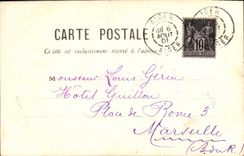 ALGER
8 AOUT 01
ALGER
CARTE POSTALE
Ce côté est exclusivement réservé à l'adresse
10
Monsieur Louis Gérin
Hôtel Guillon
Place de Rome 3
Marseille
(B.d.R.)